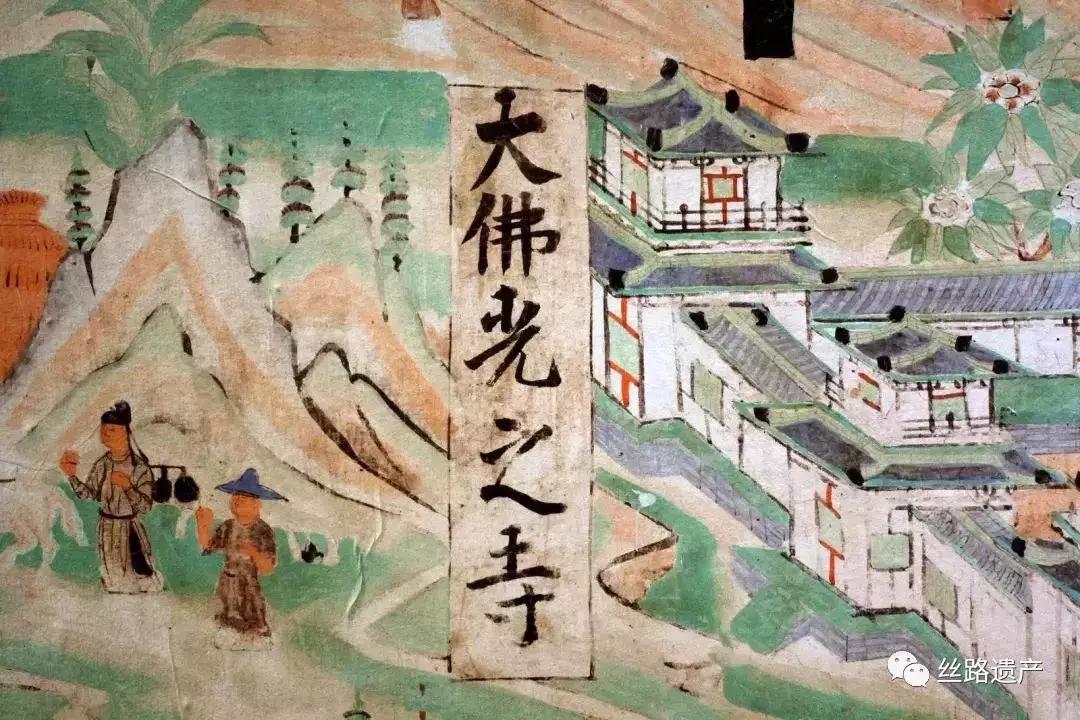 大佛光之寺
丝路遗产